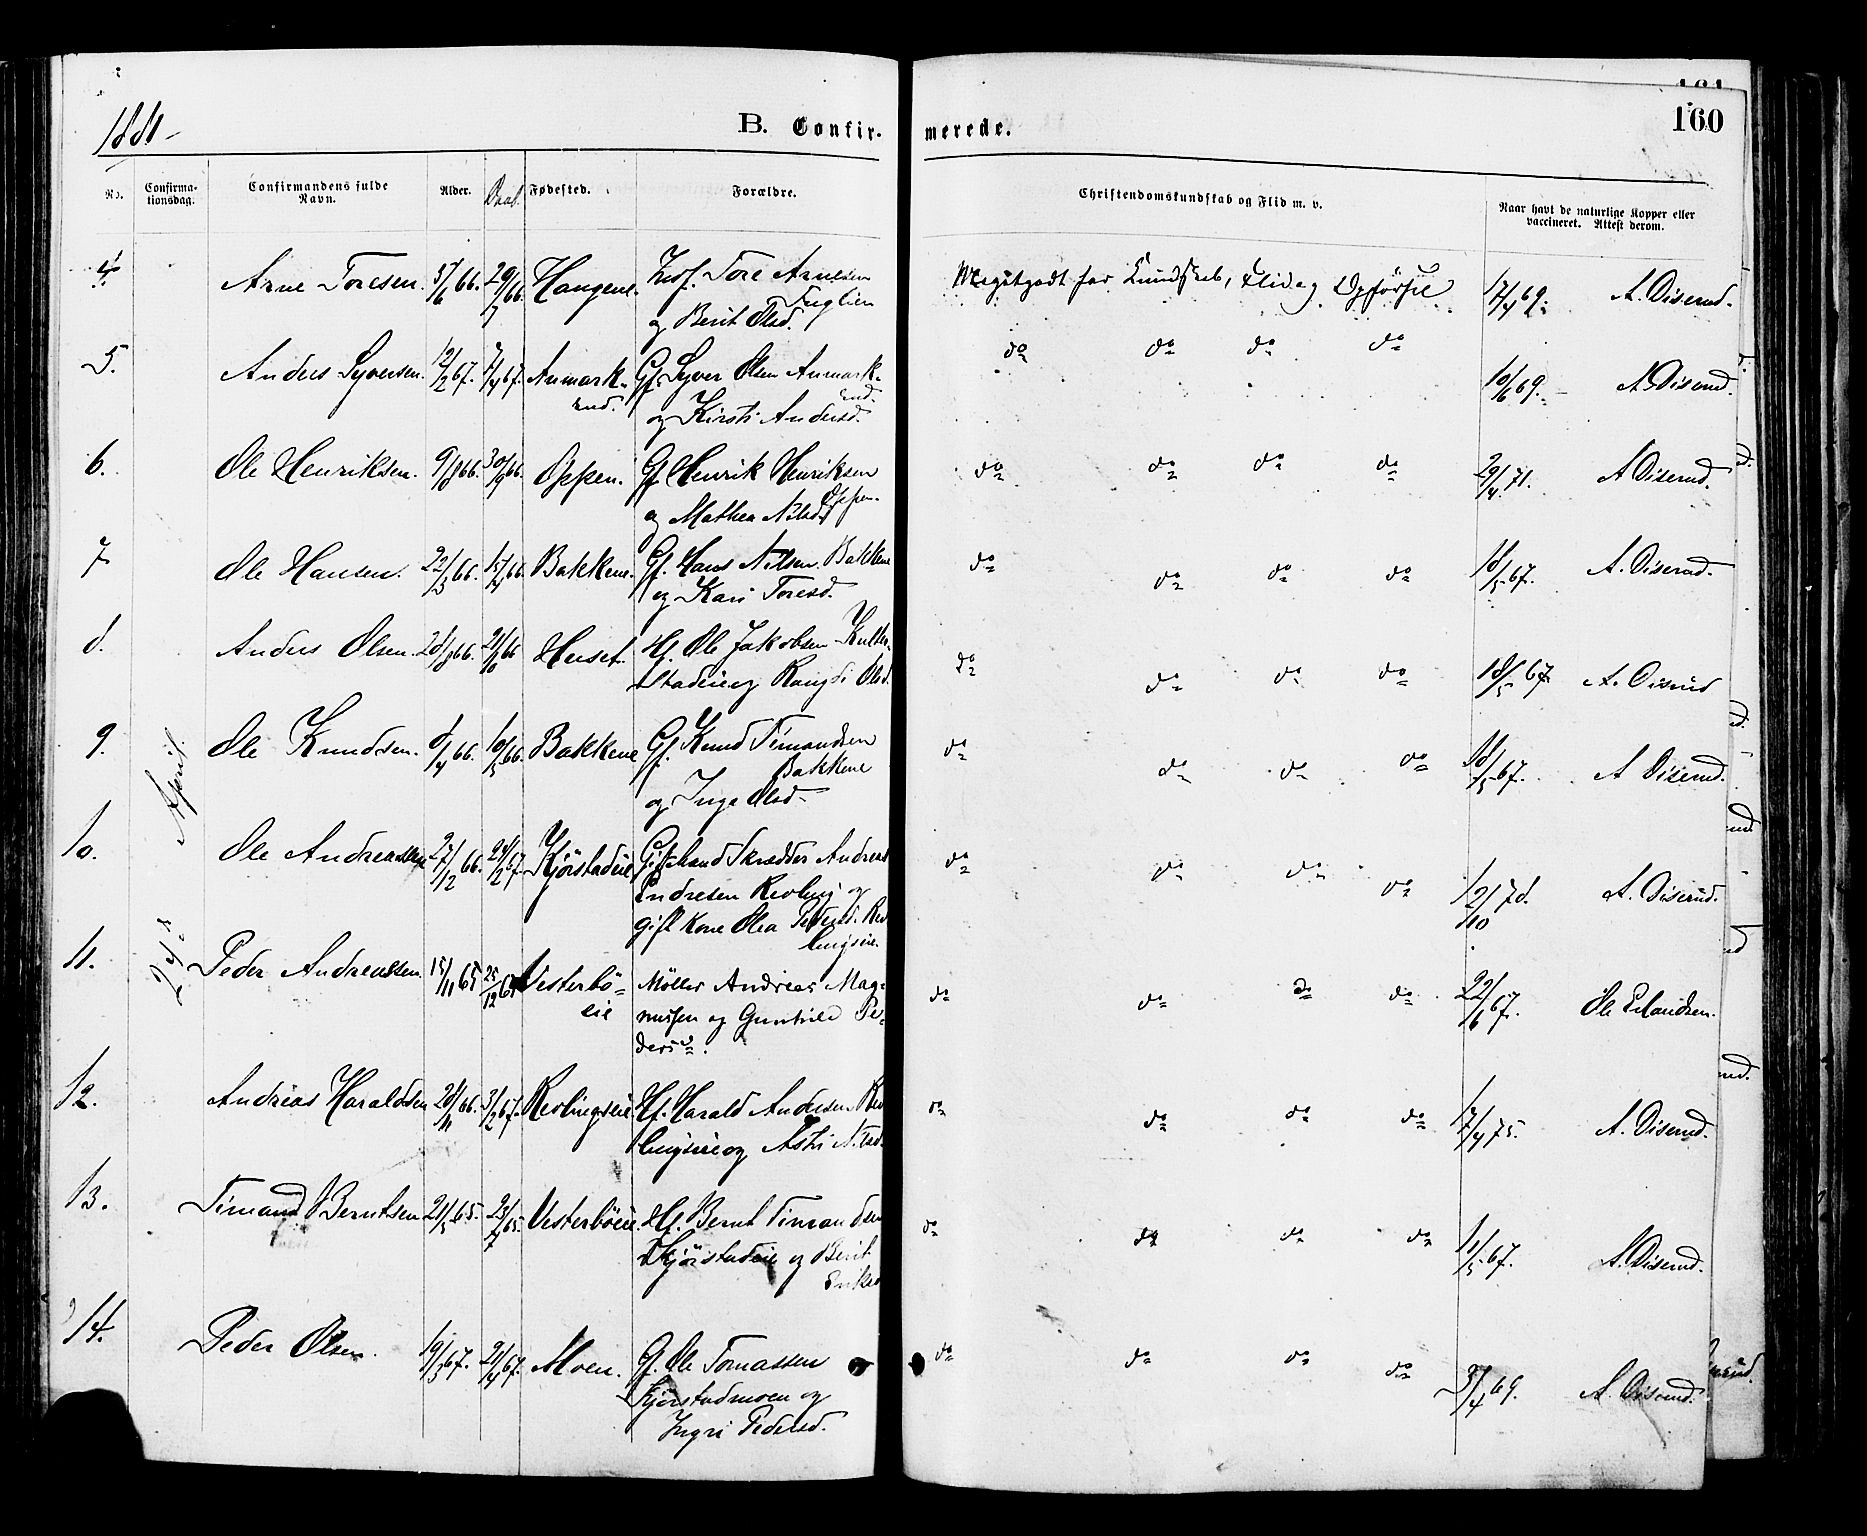 161
160
1881-
B. Confir-
merede.
No.
Confirma-
tionsdag.
Confirmandens fulde
Navn.
Alder.
Daab.
Fødested.
Forældre.
Christendomskundskab og Flid m. v.
Naar havt de naturlige Kopper eller
vaccineret. Attest derom.
24de April
4. Arne Toresen. 3/6 66. 29/7 66. Haugene. Tore Arnesen
Fuglien
og Berit Olsd.
Megetgodt for Kundskab, Flid og Opførsel 17/4 69. A. Diserud.
5. Anders Syversen. 12/2 67. 7/4 67. Aumark- Gf. Syver Olsen Aumark-
end. end.
og Kirsti Andersd.
do do do do 10/6 69. A. Diserud.
6. Ole Henriksen. 9/8 66. 30/9 66. Oppen. Gf. Henrik Henriksen
Oppen.
og Mathea Nilsd.
do do do do 29/4 71. A Diserud.
7 Ole Hansen. 22/3 66. 15/4 66. Bakkene. Gf. Hans Nilsen Bakkene
og Kari Toresd.
do do do do 18/5 67. A. Diserud.
8. Anders Olsen. 28/8 66. 21/10 66 Huset. Hf. Ole Jakobsen
stadeie og Rangdi Olsd.
do do do do 18/5 67. A. Diserud
9. Ole Knudsen. 8/4 66. 10/5 66. Bakkene Gf. Knud Timandsen
Bakkene
og Inga Olsd.
do do do do 18/5 67. A Diserud.
10. Ole Andreassen 27/12 66. 24/2 67. Kjørstadeie Giftmand Skrædder Andreas
Endresen Revling og
gift Kone Olea Pedersd. Rev
lingseie.
do do do do 12/10 78. A. Diserud.
11. Peder Andreassen. 15/11 65 25/12 65 Vesterbø-
eie
Møller Andreas Mag-
nussen og Gunhild Pe-
dersd.
do do do do 22/6 67. Ole Erlandsen.
12. Andreas Haraldsen 28/11 66. 3/2 67. Revlingseie Hf. Harald Andersen Rev
lingseie og Astri Nilsd.
do do do do 17/4 75. A. Diserud.
13. Timand Berntsen 21/5 65. 23/7 65. Vesterbøeie. Hf. Bernt Timandsen
Kjørstadeie og Berit
Eriksd
do do do do 11/5 67. A. Diserud.
14. Peder Olsen. 19/3 67. 21/4 67. Moen. Gf. Ole Tomassen
Kjørstadmoen og
Ingri Pedersd.
do do do do 3/4 69. A. Diserud.